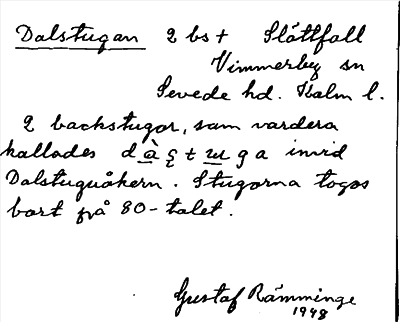 Dalstugan 2 bst Slättfall
Vimmerby sn
Sevede hd. Kalm l.
2 backstugor, som vardera
kallades d à ς t ɯ g a invid
Dalstuguåkern. Stugorna togos
bort på 80-talet.
Gustaf Rämminge
1948